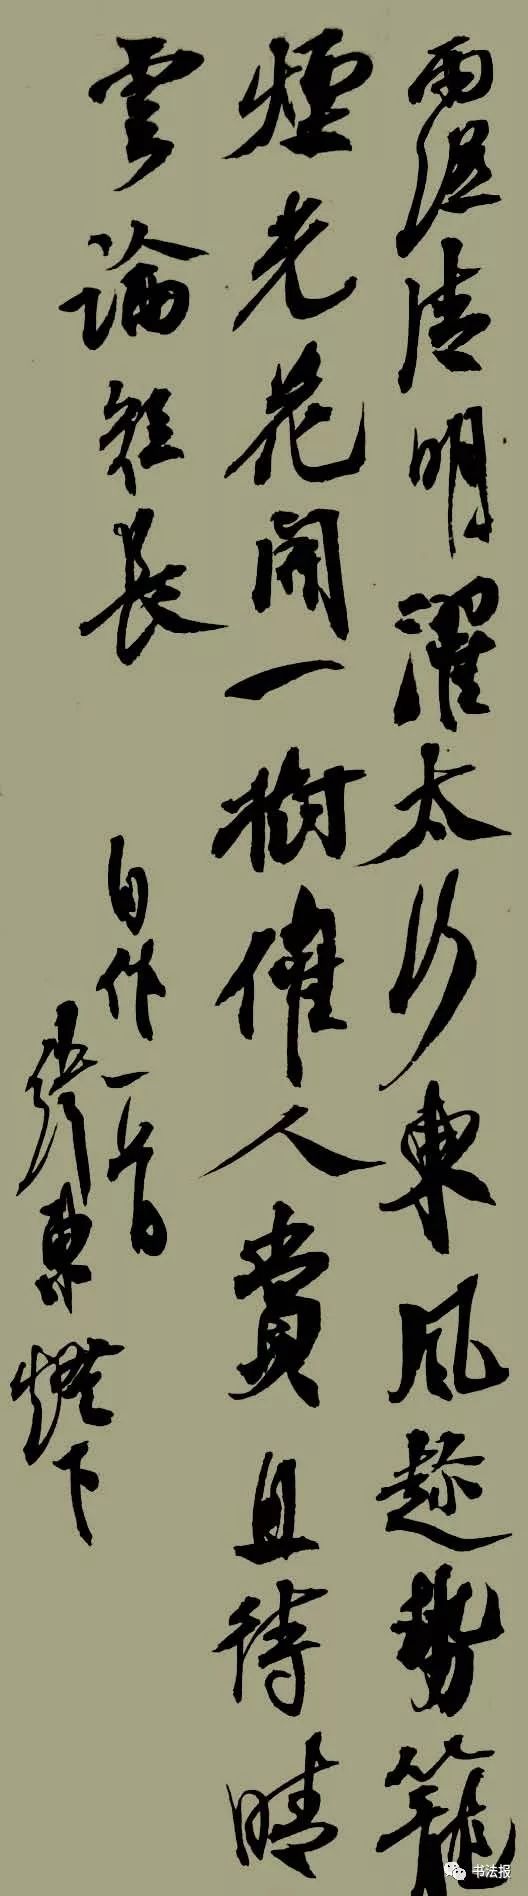 雨浥清明濯太行東風趁勢籠
煙光花開一樹催人賞且待晴
雲論短長
自作一首
張東燈下
书法报